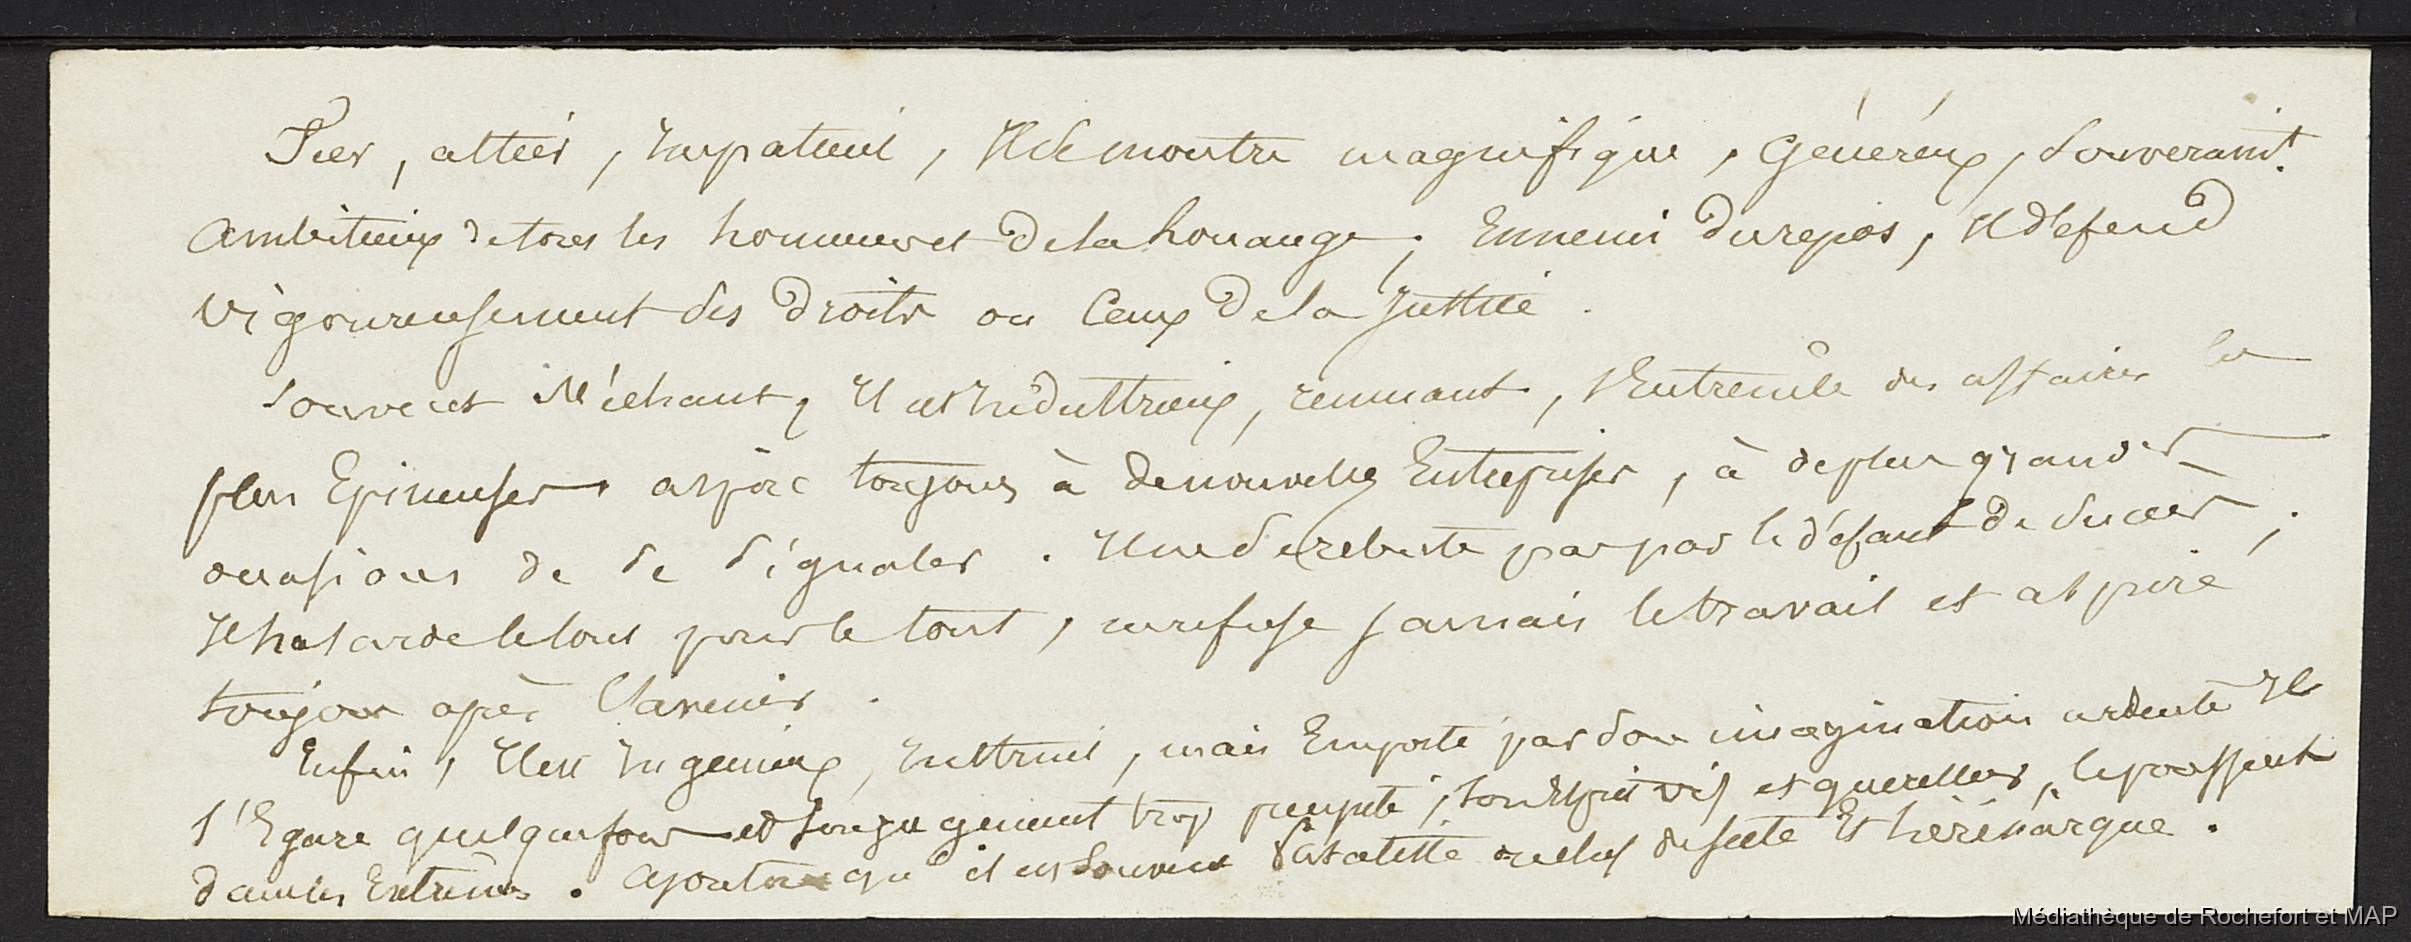 Fier, altier, Impatient, Il se montre magnifique, Généreux, Souveraint.
Ambitieux de tous les honneurs et De la Louange; Ennemi Du repos, Il défend
vigoureusement ses Droits ou Ceux De la Justice.
Souvent Méchant, Il est Industrieux, remuant, s'Entremêle des affaires les
plus Epineuses, aspire toujours à de nouvelles Entreprises, à de plus grandes
occasions de se signaler. Il ne se rebute pas par le défaut de succès;
Il hasarde le tout pour le tout, ne refuse jamais le travail et aspire
toujours après l'avenir.
Enfin, Il est Ingénieux, Instruit, mais Emporté par son imagination ardente Il
s'Egare quelquefois et son jugement trop précipité, son Esprit vif et querelleur, le poussent
dans les Extrêmes. ajoutons qu'il est souvent chef de secte Et hérésiarque.
Médiathèque de Rochefort et MAP